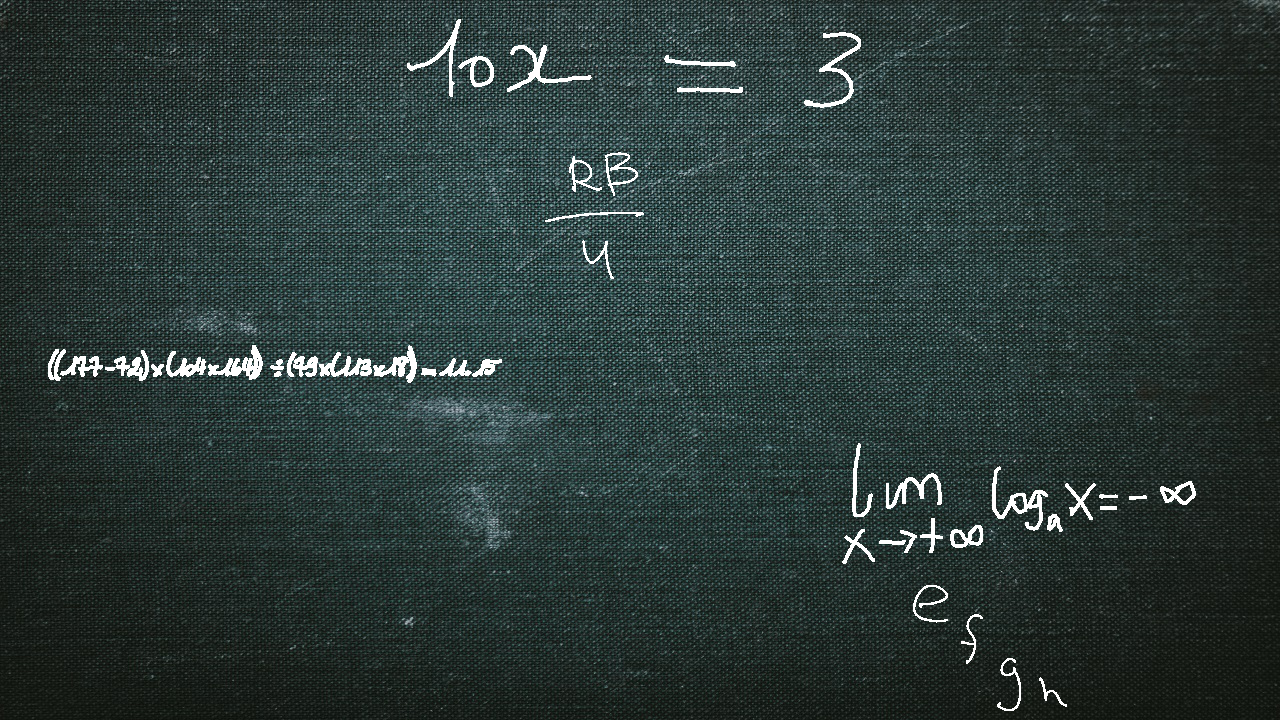 10x = 3
RB
4
((177-72)×(104×164)) ÷(79×(113×18) = 11.15
lim log_a x = -∞
x→+∞
e
f
g h